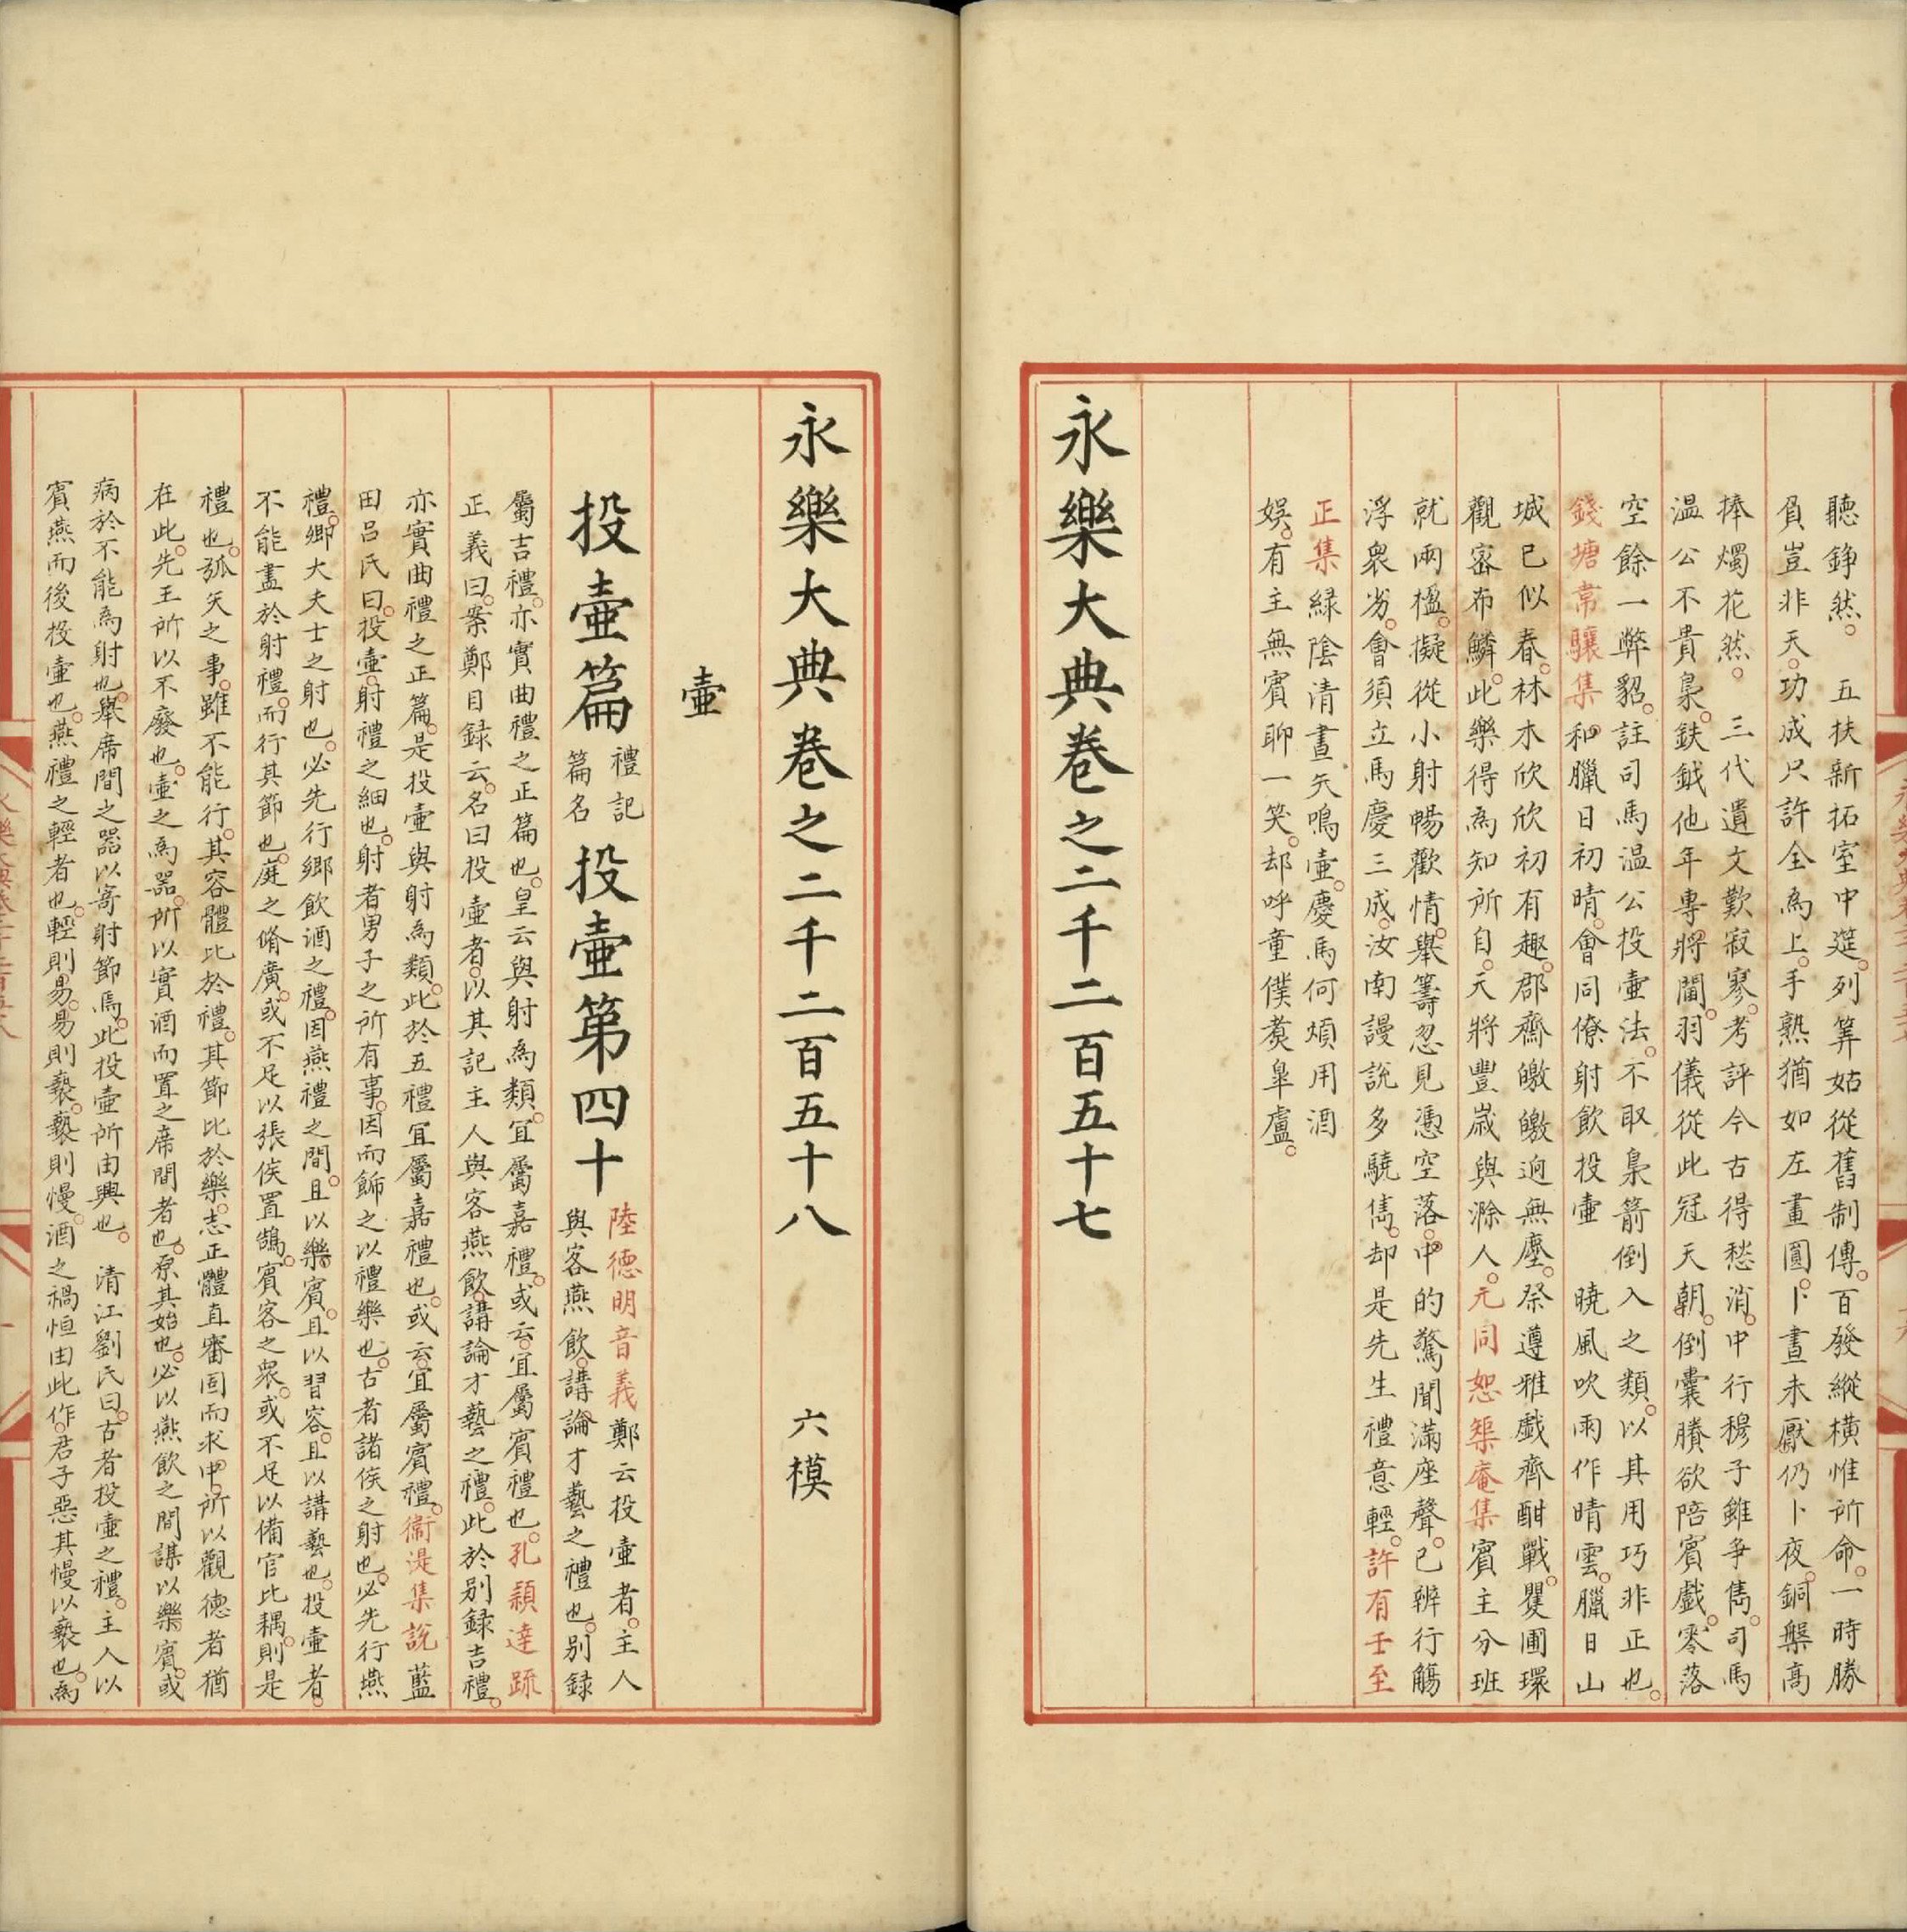 聽錚然。 五扶新拓室中筵。列筭姑從舊制傳。百發縱橫惟所命。一時勝
負豈非天。功成只許全為上。手熟猶如左畫圓。卜晝未厭仍卜夜。銅槃高
捧燭花然。 三代遺文歎寂寥。考評今古得愁消。中行穆子雖爭雋。司馬
温公不貴梟。鈇鉞他年專將閫。羽儀從此冠天朝。倒囊賸欲陪賓戲。零落
空餘一弊貂。註司馬温公投壺法。不取梟箭倒入之類。以其用巧非正也。
錢塘韋驤集和臘日初晴。會同僚射飲投壺 曉風吹雨作晴雲。臘日山
城已似春。林木欣欣初有趣。郡齋皦皦逈無塵。祭遵雅戲齊酣戰。矍圃環
觀密布鱗。此樂得為知所自。天將豐歲與滁人。元同恕榘庵集賓主分班
就兩楹。擬從小射暢歡情。舉籌忽見憑空落。中的驚聞滿座聲。已辨行觴
浮衆劣。會須立馬慶三成。汝南謾說多驍雋。却是先生禮意輕。許有壬至
正集緑陰清晝矢鳴壺。慶馬何煩用酒
娱。有主無賓聊一笑。却呼童僕煑皐盧。
永樂大典卷之二千二百五十七
永樂大典卷之二千二百五十八 六模
壺
投壺篇 禮記
篇名
投壺第四十 陸德明音義鄭云投壺者。主人
與客燕飲。講論才藝之禮也。别録
屬吉禮。亦實曲禮之正篇也。皇云與射為類。宜屬嘉禮。或云。宜屬賓禮也。孔頴達疏
正義曰。案鄭目録云。名曰投壺者。以其記主人與客燕飲。講論才藝之禮。此於别録吉禮。
亦實曲禮之正篇。是投壺與射為類。此於五禮宜屬嘉禮也。或云。宜屬賓禮。衞湜集說藍
田吕氏曰。投壺。射禮之細也。射者男子之所有事。因而飾之以禮樂也。古者諸侯之射也。必先行燕
禮。卿大夫士之射也。必先行鄉飲酒之禮。因燕禮之間。且以樂賓。且以習容。且以講藝也。投壺者。
不能盡於射禮。而行其節也。庭之脩廣。或不足以張侯置鵠。賓客之衆。或不足以備官比耦。則是
禮也。弧矢之事。雖不能行。其容體比於禮。其節比於樂。志正體直審固而求中。所以觀德者猶
在此。先王所以不廢也。壺之為器。所以實酒而置之席間者也。原其始也。必以燕飲之間謀以樂賓。或
病於不能為射也。舉席間之器以寄射節焉。此投壺所由興也。 清江劉氏曰。古者投壺之禮。主人以
賓燕而後投壺也。燕禮之輕者也。輕則易。易則褻。褻則慢。酒之禍恒由此作。君子惡其慢以褻也。為